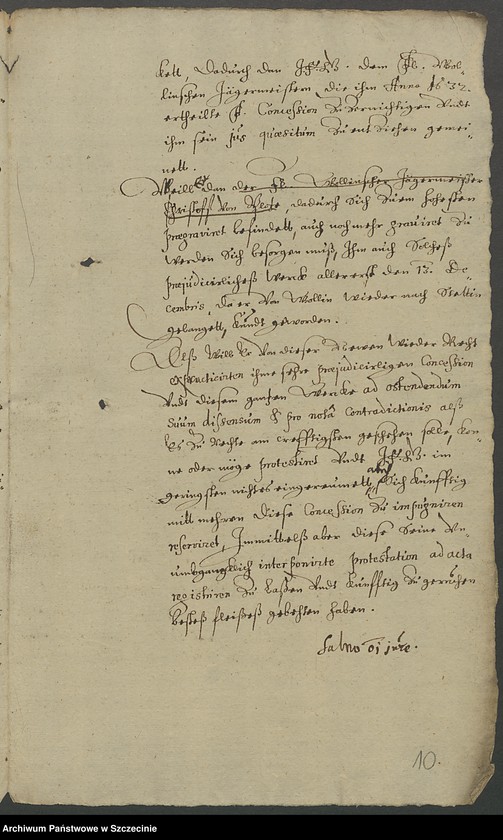 kett, Dadurch den Jhr. dem F. Wol-
linschen Jägermeistern, die ihm Anno 1632.
ertheilte F. Concession zu vernichtigen undt
ihm sein jus quæsitum zu entziehen gemei-
nett.
Weill Er dan der F. Wollinscher Jägermeister
Christoff von , dadurch sich zum hohesten
prægraviret befindett, auch noch mehr graviret zu
werden sich besorgen muß, Ihm auch solches
præjudicirliches Werck allererst den 13. De-
cembris, da er von Wollin wieder nach Stettin
gelangett, kundt geworden.
Alß will Er von dieser newen wieder Recht
expracticirten ihme sehr præjudicirligen Concession
undt diesem gantzen Wercke ad ostendendum
suum dissensum & pro nota contradictionis alß
Es zu Rechte am crefftigsten geschehen solle, kön-
ne oder möge protestiret undt im
geringsten nichtes eingereumett, auch sich künfftig
mitt mehren diese Concession zu impugniren
reserviret, Immittelß aber diese seine un-
umbgänglich interponirte protestation ad acta
registriren zu laßen undt künfftig zu geruchen
bestes fleißes gebethen haben.
Salvo oi jure.
10.
Archiwum Państwowe w Szczecinie